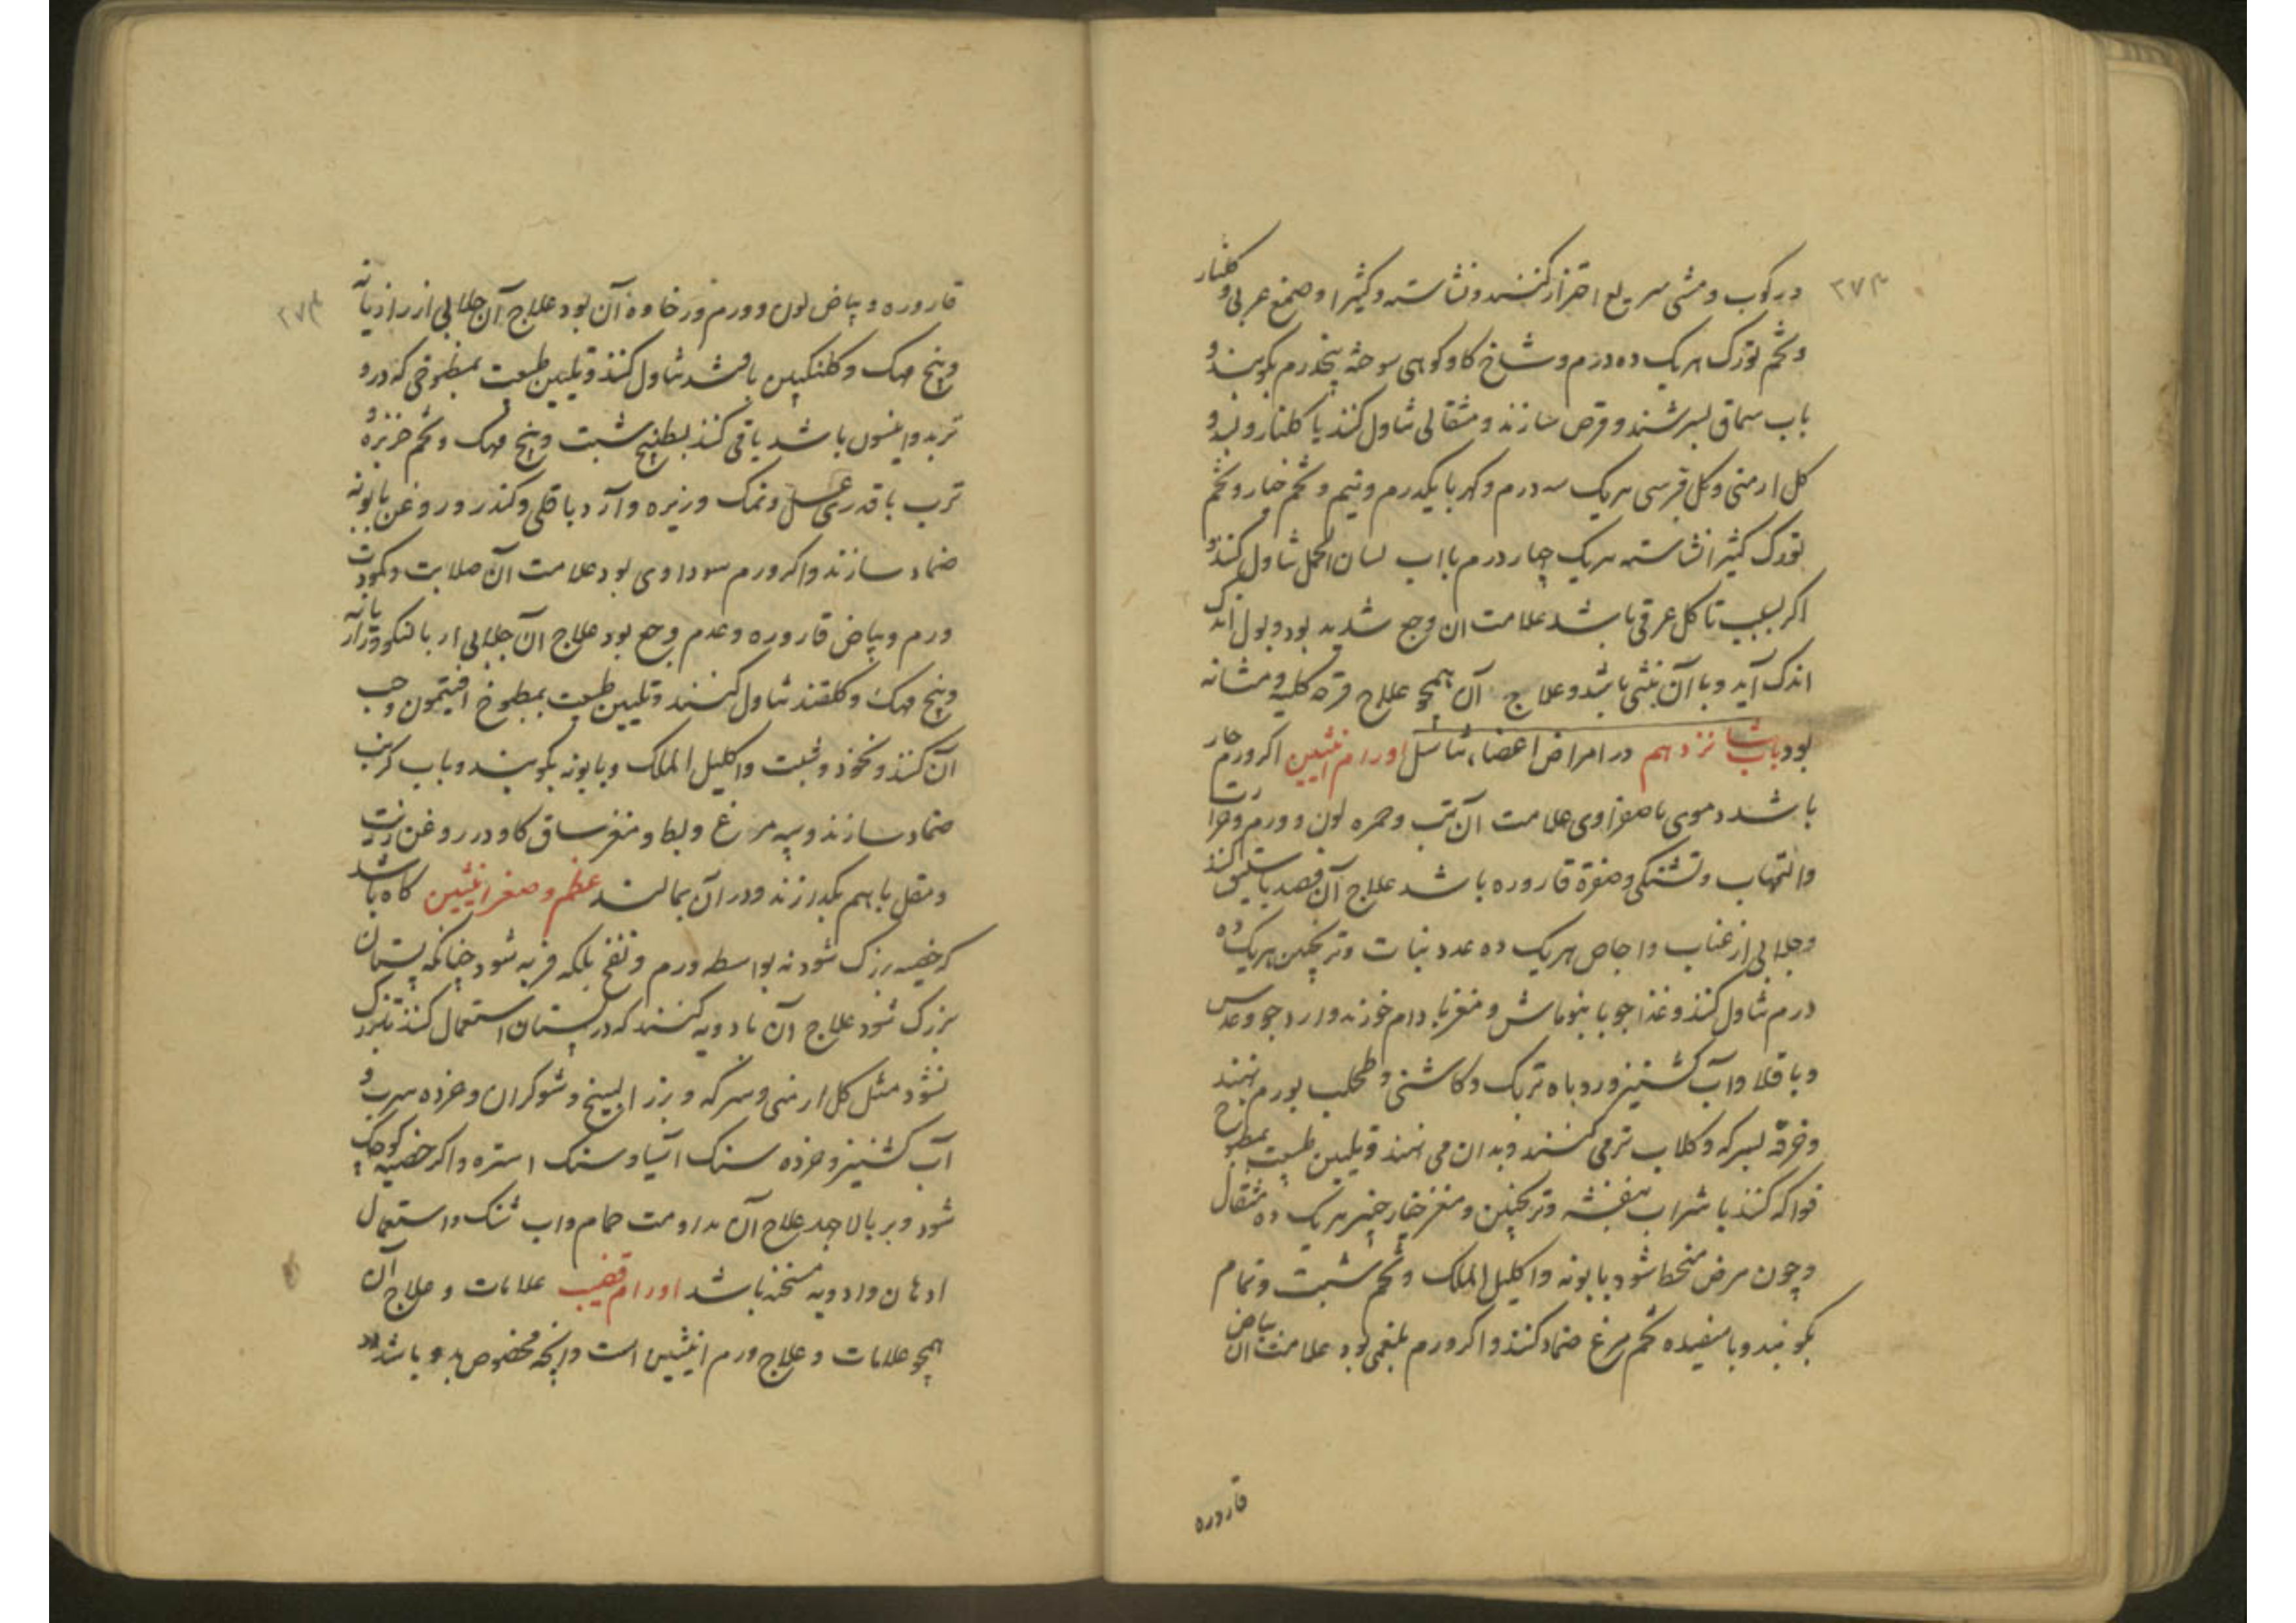 ۲۷۳
در کوب و مشی سریع احتراز کنند و نشاسته و کثیرا و صمغ عربی و کلنار
و تخم تورک هریک ده درم و شاخ کاو کوهی سوخته پنجدرم بکوبند و
باب سماق بسرشند و قرص سازند و مثقالی تناول کنند یا کلنار و بسد و
کل ارمنی و کل قبرسی هریک سه درم و کهربا یکدرم و نیم و تخم خیار و تخم
تورک کثیرا نشاسته هریک چهار درم بااب لسان الحمل تناول کنند و
اکر بسبب تاکل عرقی باشد علامت ان وجع شدید بود و بول اندک
اندک آید و با آن باشد و علاج آن همچو علاج قرحه کلیه و مثانه
بود باب شانزدهم در امراض اعضاء تناسل اورام انثیین اکر ورم حار
باشد دموی یا صفراوی علامت آن تب و حمره لون و ورم و حرارت
والتهاب و تشنکی و صفرة قاروره باشد علاج آن فصد باسلیق کنند
و جلابی از عناب و اجاص هریک ده عدد نبات و ترنجبین هریک ده
درم تناول کنند و غذا جو با بنوماش و مغز بادام خورند وارد جو و عدس
و باقلا و آب کشنیز و روباه تربک و کاشنی و طحلب بورم نهند
و خرقه بسرکه و کلاب تر می کنند و بدان می نهند و تلیین طبیعت بمطبوخ
فواکه کنند یا شراب بنفشه و ترنجبین و مغز خیار چنبر هریک ده مثقال
و چون مرض منحط شود بابونه و اکلیل الملک و تخم شبت و نمام
بکوبند و با سفیده تخم مرغ ضماد کنند و اکر ورم بلغمی بود علامت ان بیاض
قاروره
۲۷۴
قاروره و بیاض لون و ورم و رخاوة آن بود علاج آن جلابی از رازیانه
و بیخ مهک و کلنکبین باشد تناول کنند و تلیین طبیعت بمطبوخی که در و
تربد و انیسون باشد یا قی کنند بطبیخ شبت و بیخ مهک و تخم خربزه و
ترب با قدری عسل و نمک و زیره و آرد باقلی و کندر و روغن بابونه
ضماد سازند و اکر ورم سوداوی بود علامت آن صلابت و کمودت
ورم و بیاض قاروره و عدم وجع بود علاج آن جلابی از بالنکو و رازیانه
و بیخ مهک و کلقند تناول کنند و تلیین طبیعت بمطبوخ افتیمون و حب
آن کنند و نخود و شبت و اکلیل الملک و بابونه بکوبند و باب کرنب
ضماد سازند و پیه مرغ و بط و مغز ساق کاو در روغن زیت
و مقل با هم بکدازند و در آن بمالند عظم و صغر انثیین کاه باشد
که خصیه بزرک شود نه بواسطه ورم و نفخ بلکه فربه شود چنانکه پستان
بزرک شود علاج آن بادویه کنند که در پستان استعمال کنند تا بزرک
نشود مثل کل ارمنی و سرکه و بزر البنج و شوکران و خرده سرب و
آب کشنیز و خرده سنک آسیا و سنک استره و اکر خصیه کوچک
شود و بر بالا جهد علاج آن مداومت حمام و اب تنک و استعمال
ادهان و ادویه مسخنه باشد اورام قضیب علامات و علاج آن
همچو علامات و علاج ورم انثیین است و آنچه مخصوص بدو باشد